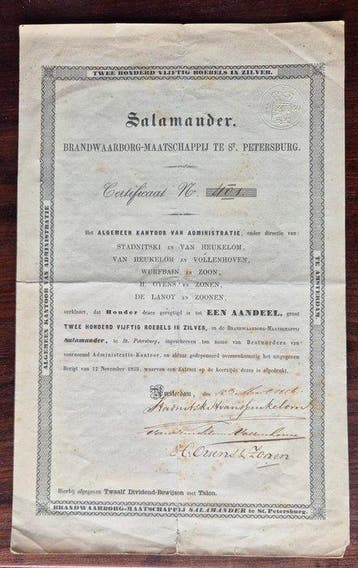 TWEE HONDERD VIJFTIG ROEBELS IN ZILVER.
Salamander.
BRANDWAARBORG-MAATSCHAPPIJ TE St. PETERSBURG.
Certificaat No
Het ALGEMEEN KANTOOR VAN ADMINISTRATIE, onder directie van:
STADNITSKI EN VAN HEUKELOM,
VAN HEUKELOM EN VOLLENHOVEN,
WURFBAIN EN ZOON,
H. OYENS EN ZONEN,
DE LANOY EN ZOONEN,
verklaart, dat Houder dezes geregtigd is tot EEN AANDEEL, groot
TWEE HONDERD VIJFTIG ROEBELS IN ZILVER, in de BRANDWAARBORG-MAATSCHAPPIJ
Salamander, te St. Petersburg, ingeschreven ten name van Bestuurders van
voornoemd Administratie-Kantoor, en aldaar gedeponeerd overeenkomstig het uitgegeven
Berigt van 12 November 1855, waarvan een Extract op de keerzijde dezes is afgedrukt.
Amsterdam, den
Stadnitski & van Heukelom
H. Oyens & Zonen
Hierbij afgegeven Twaalf Dividend-Bewijzen met Talon.
BRANDWAARBORG-MAATSCHAPPIJ SALAMANDER te St. Petersburg.
ALGEMEEN KANTOOR VAN ADMINISTRATIE
TE AMSTERDAM